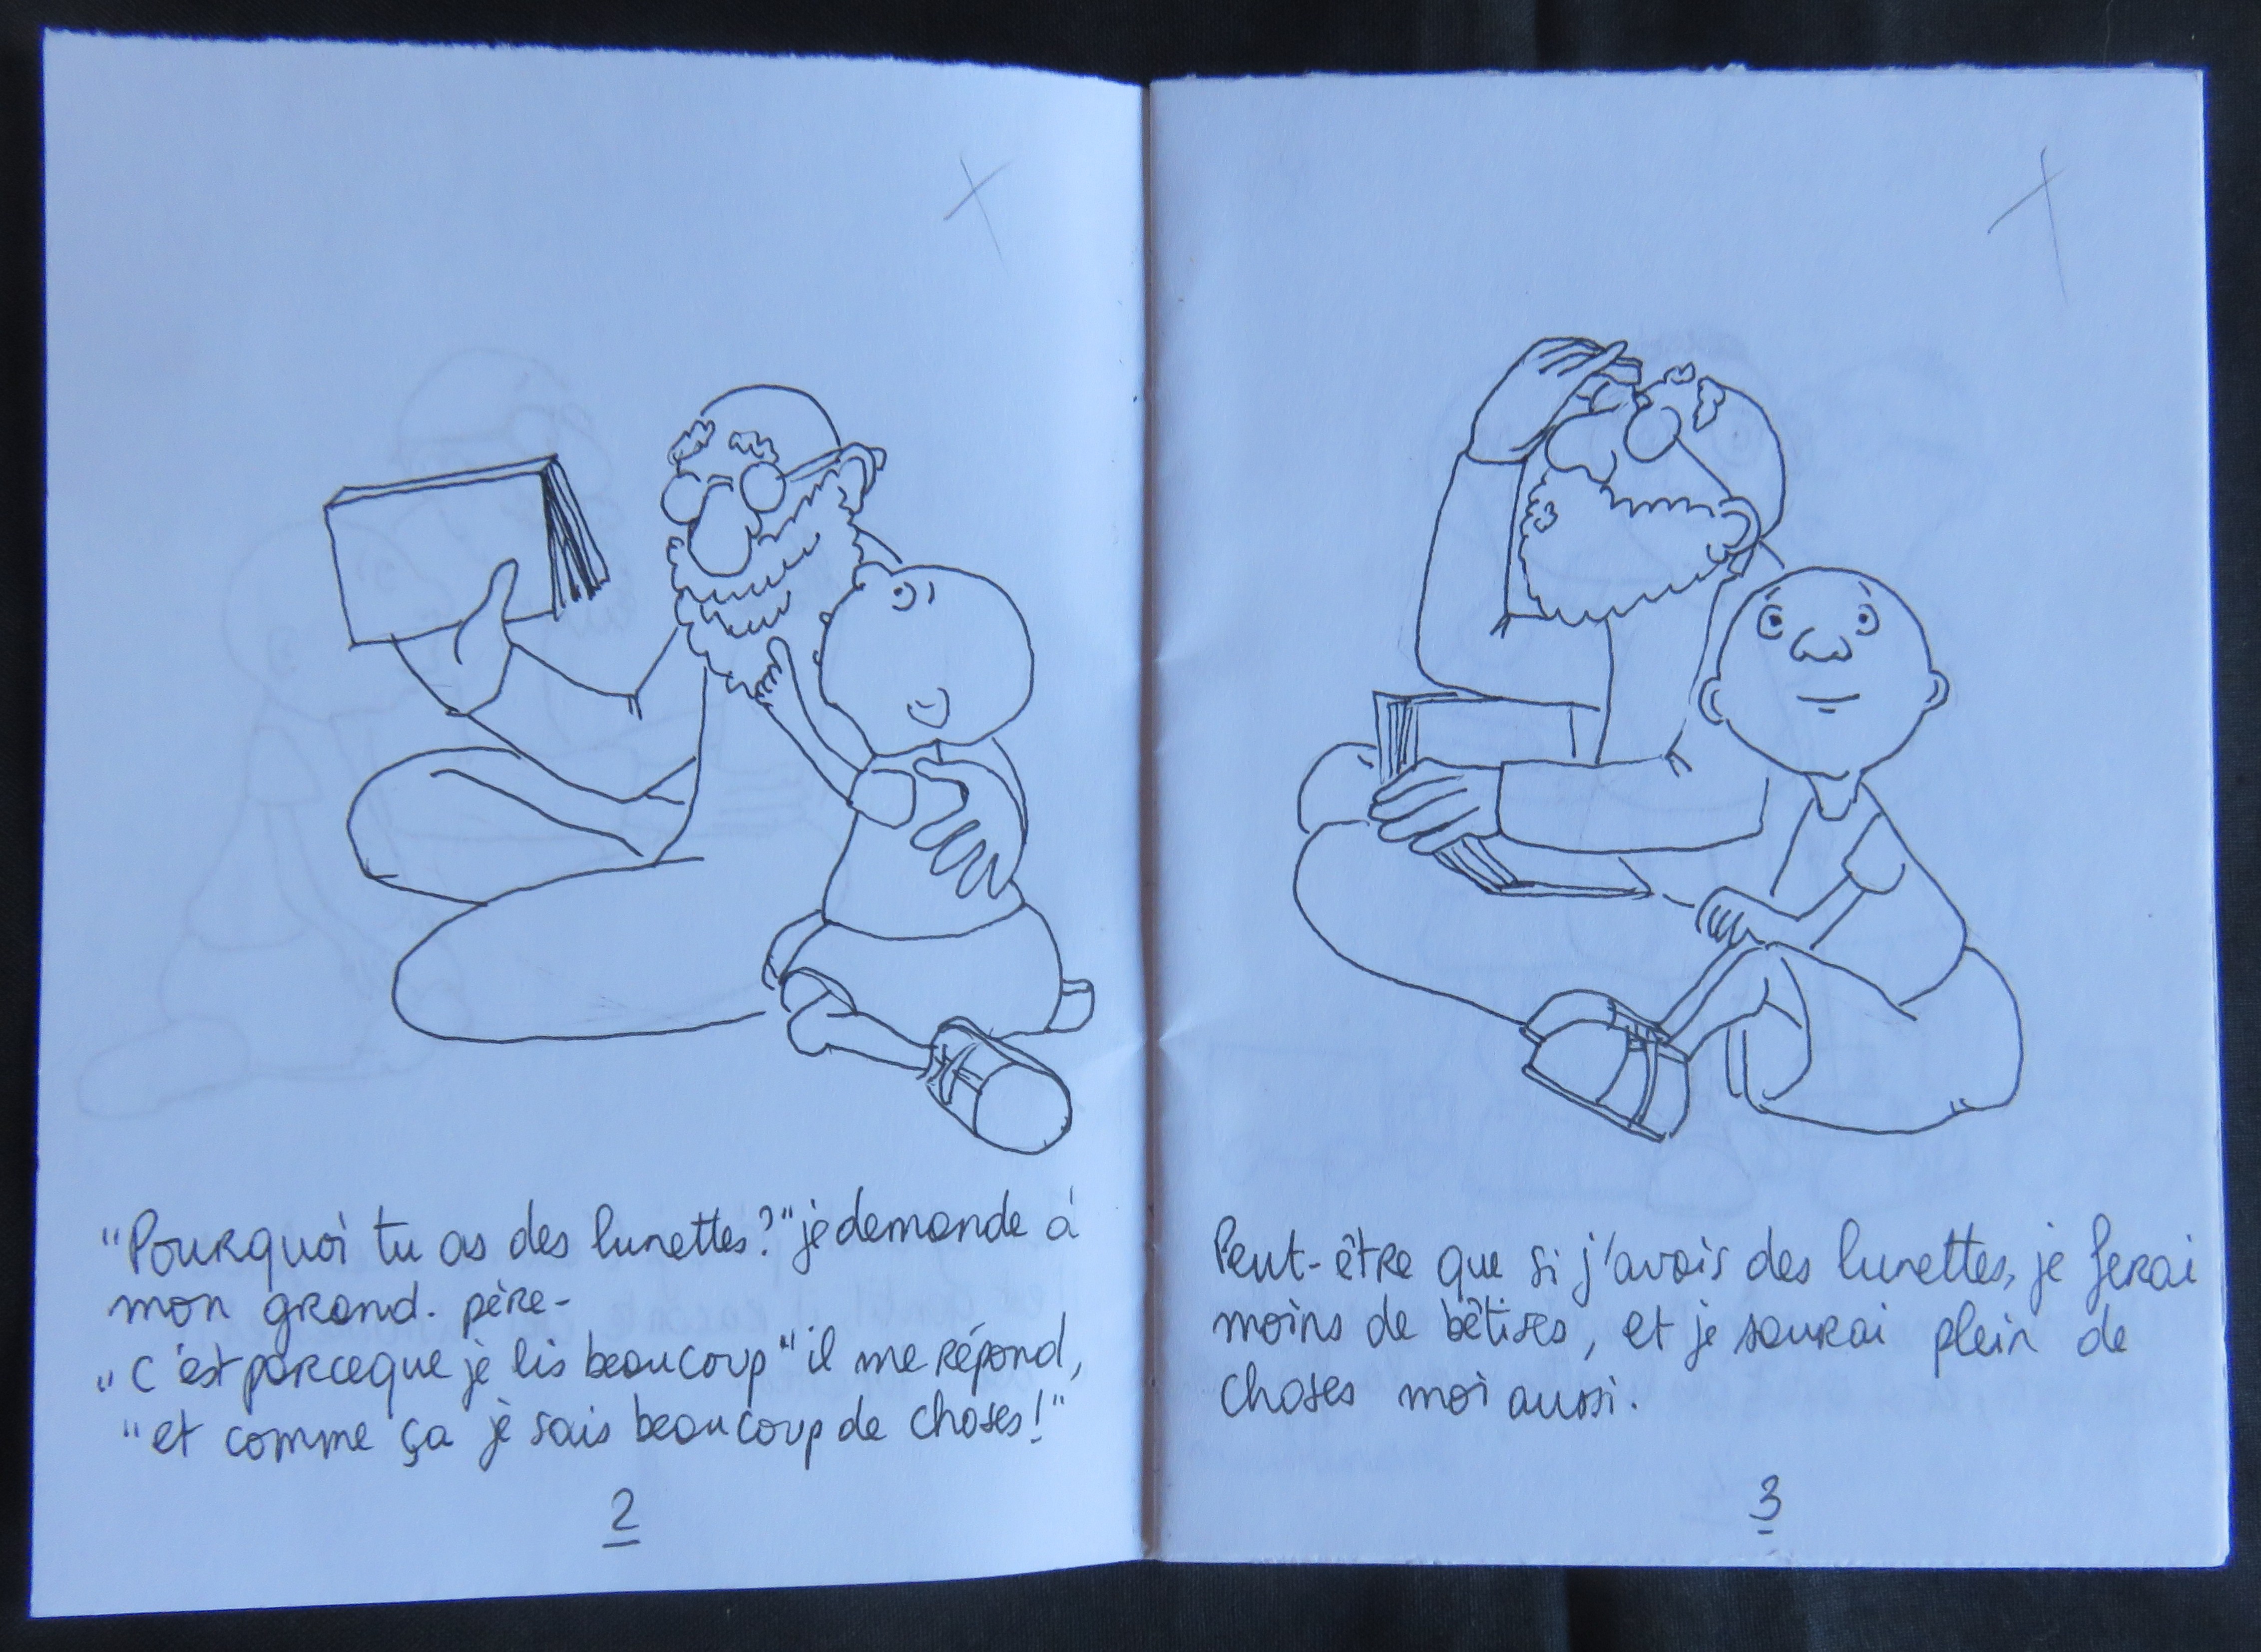 "Pourquoi tu as des lunettes?" je demande à
mon grand. père-
"C'est parceque je lis beaucoup" il me répond,
"et comme ça je sais beaucoup de choses!"
2
Peut-être que si j'avais des lunettes, je ferai
moins de bêtises, et je saurai plein de
choses moi aussi.
3